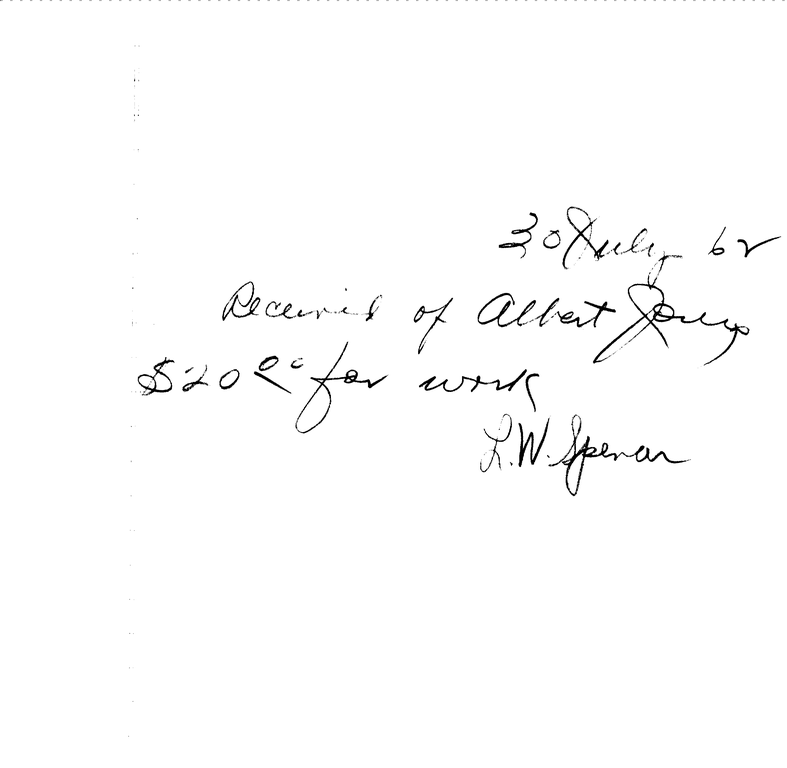 30 July 62
Received of Albert Jones
$20 00 for work
L.W. Spencer